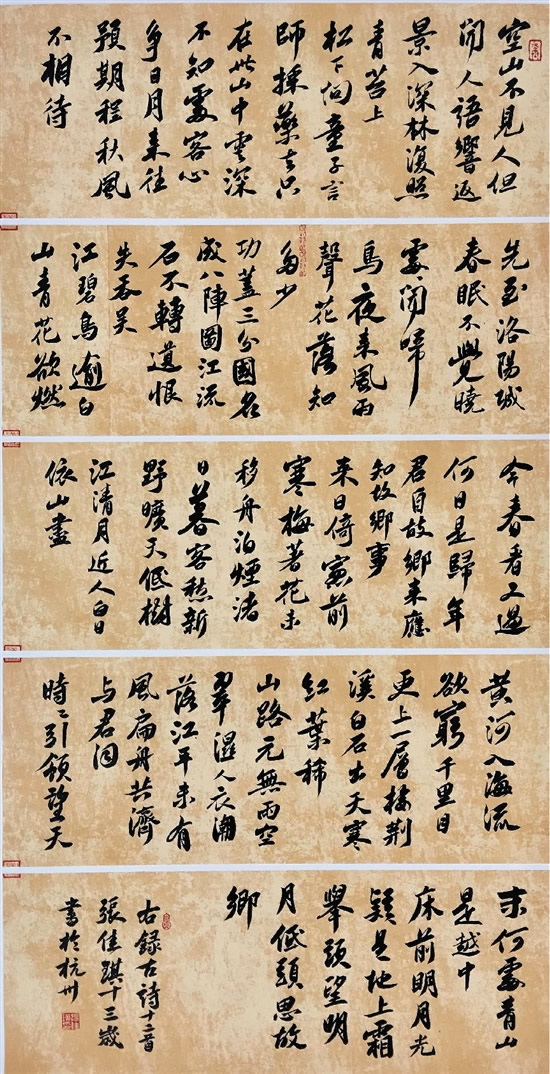 空山不見人但
聞人語響返
景入深林復照
青苔上
松下问童子言
師採藥去只
在此山中雲深
不知處客心
争日月来往
預期程秋風
不相待
先至洛陽城
春眠不覺曉
處處聞啼
鳥夜来風雨
聲花落知
多少
功蓋三分國名
成八陣圖江流
石不轉遺恨
失吞吴
江碧鳥逾白
山青花欲燃
今春看又過
何日是歸年
君自故鄉来應
知故鄉事
来日倚窗前
寒梅著花未
移舟泊煙渚
日暮客愁新
野曠天低樹
江清月近人白日
依山盡
黄河入海流
欲窮千里目
更上一層樓荆
溪白石出天寒
红葉稀
山路元無雨空
翠濕人衣潮
落江平未有
風扁舟共濟
与君同
時時引領望天
末何處青山
是越中
床前明月光
疑是地上霜
舉頭望明
月低頭思故
鄉
右錄古詩十二首
張佳琪十三歲
書於杭州